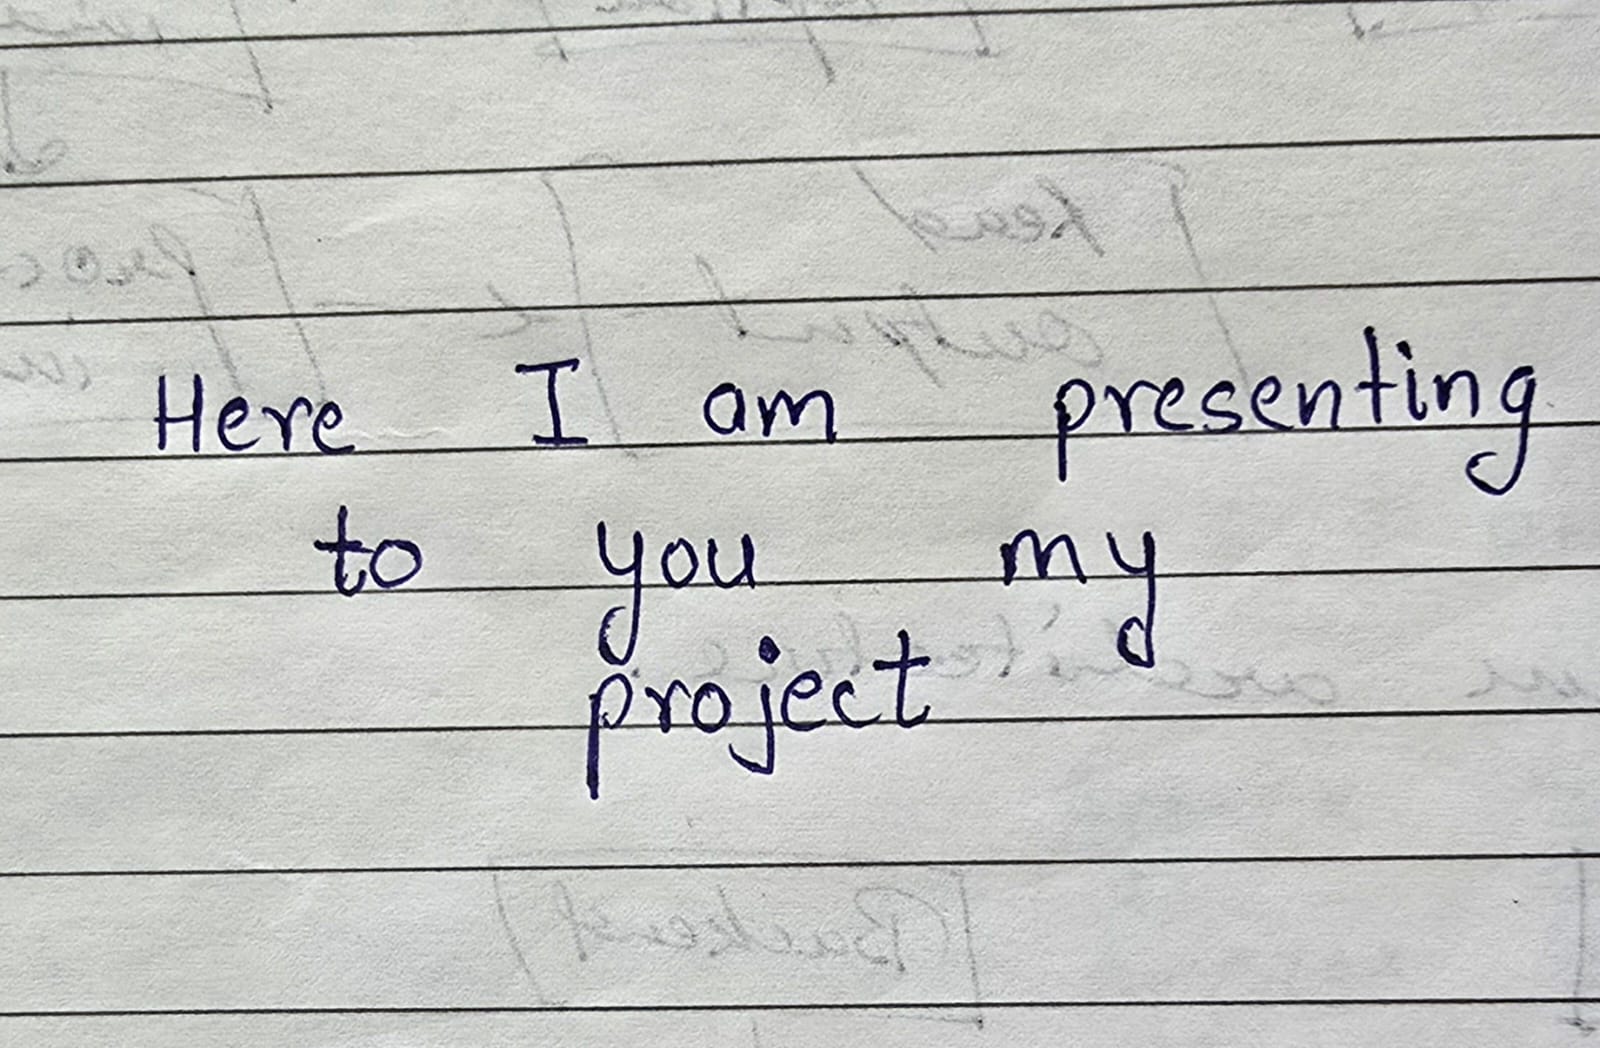 Here I am presenting
to you my
project